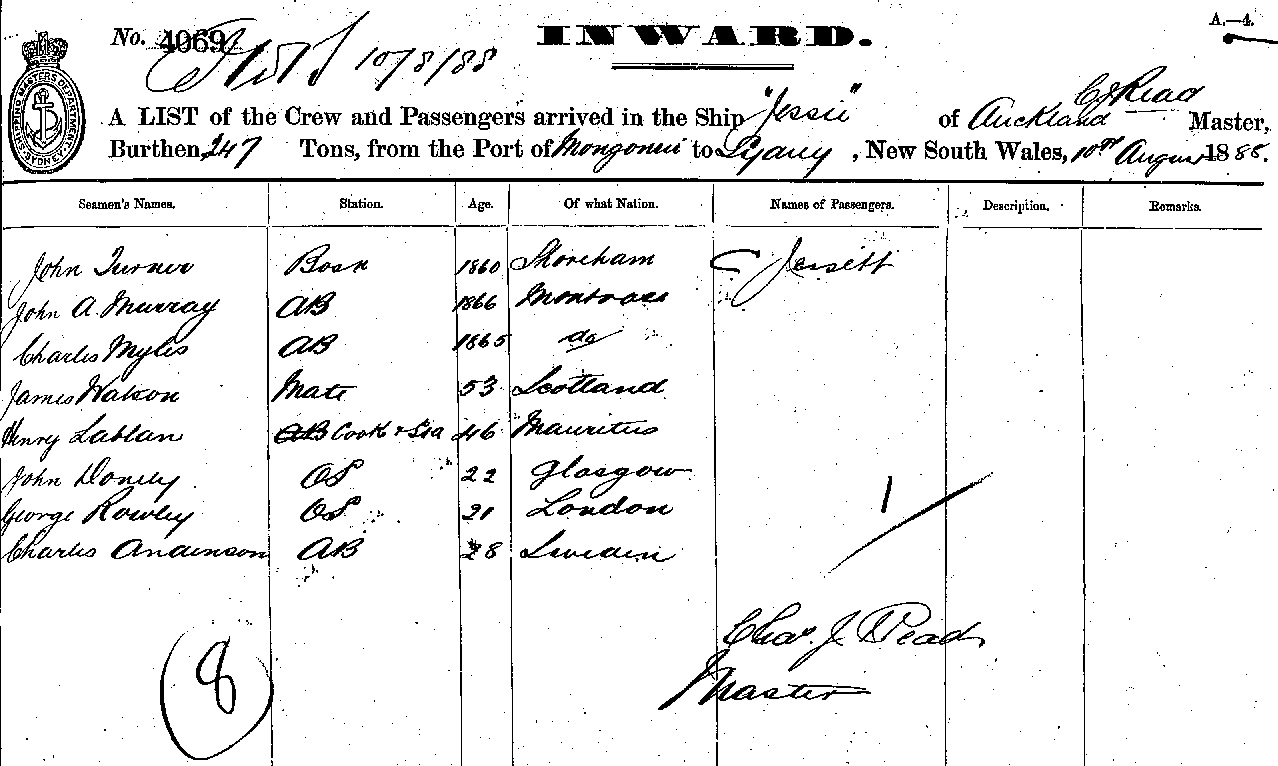 No. 4069 10/8/88 INWARD. A.—4.
SHIPPING MASTERS DEPARTMENT SYDNEY
C J Read
A LIST of the Crew and Passengers arrived in the Ship "Jessie" of Auckland Master,
Burthen 247 Tons, from the Port of Mongonui to Sydney, New South Wales, 10th August 1888.
Seamen's Names. Station. Age. Of what Nation. Names of Passengers. Description. Remarks.
John Turner Bosn 1860 Shoreham C Jessett
John A. Murray AB 1866 Montrose
Charles Myles AB 1865 do
James Watson Mate 53 Scotland
Henry Lablan AB Cook & Sea 46 Mauritus
John OS 22 Glasgow
George Rowley OS 21 London
Charles Anderson AB 28 Sweden
1
Chas. J. Read
Master
8